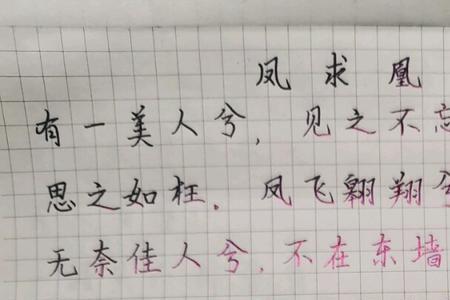 凤求凰
有一美人兮,见之不忘
思之如枉.凤飞翱翔兮
无奈佳人兮.不在东墙